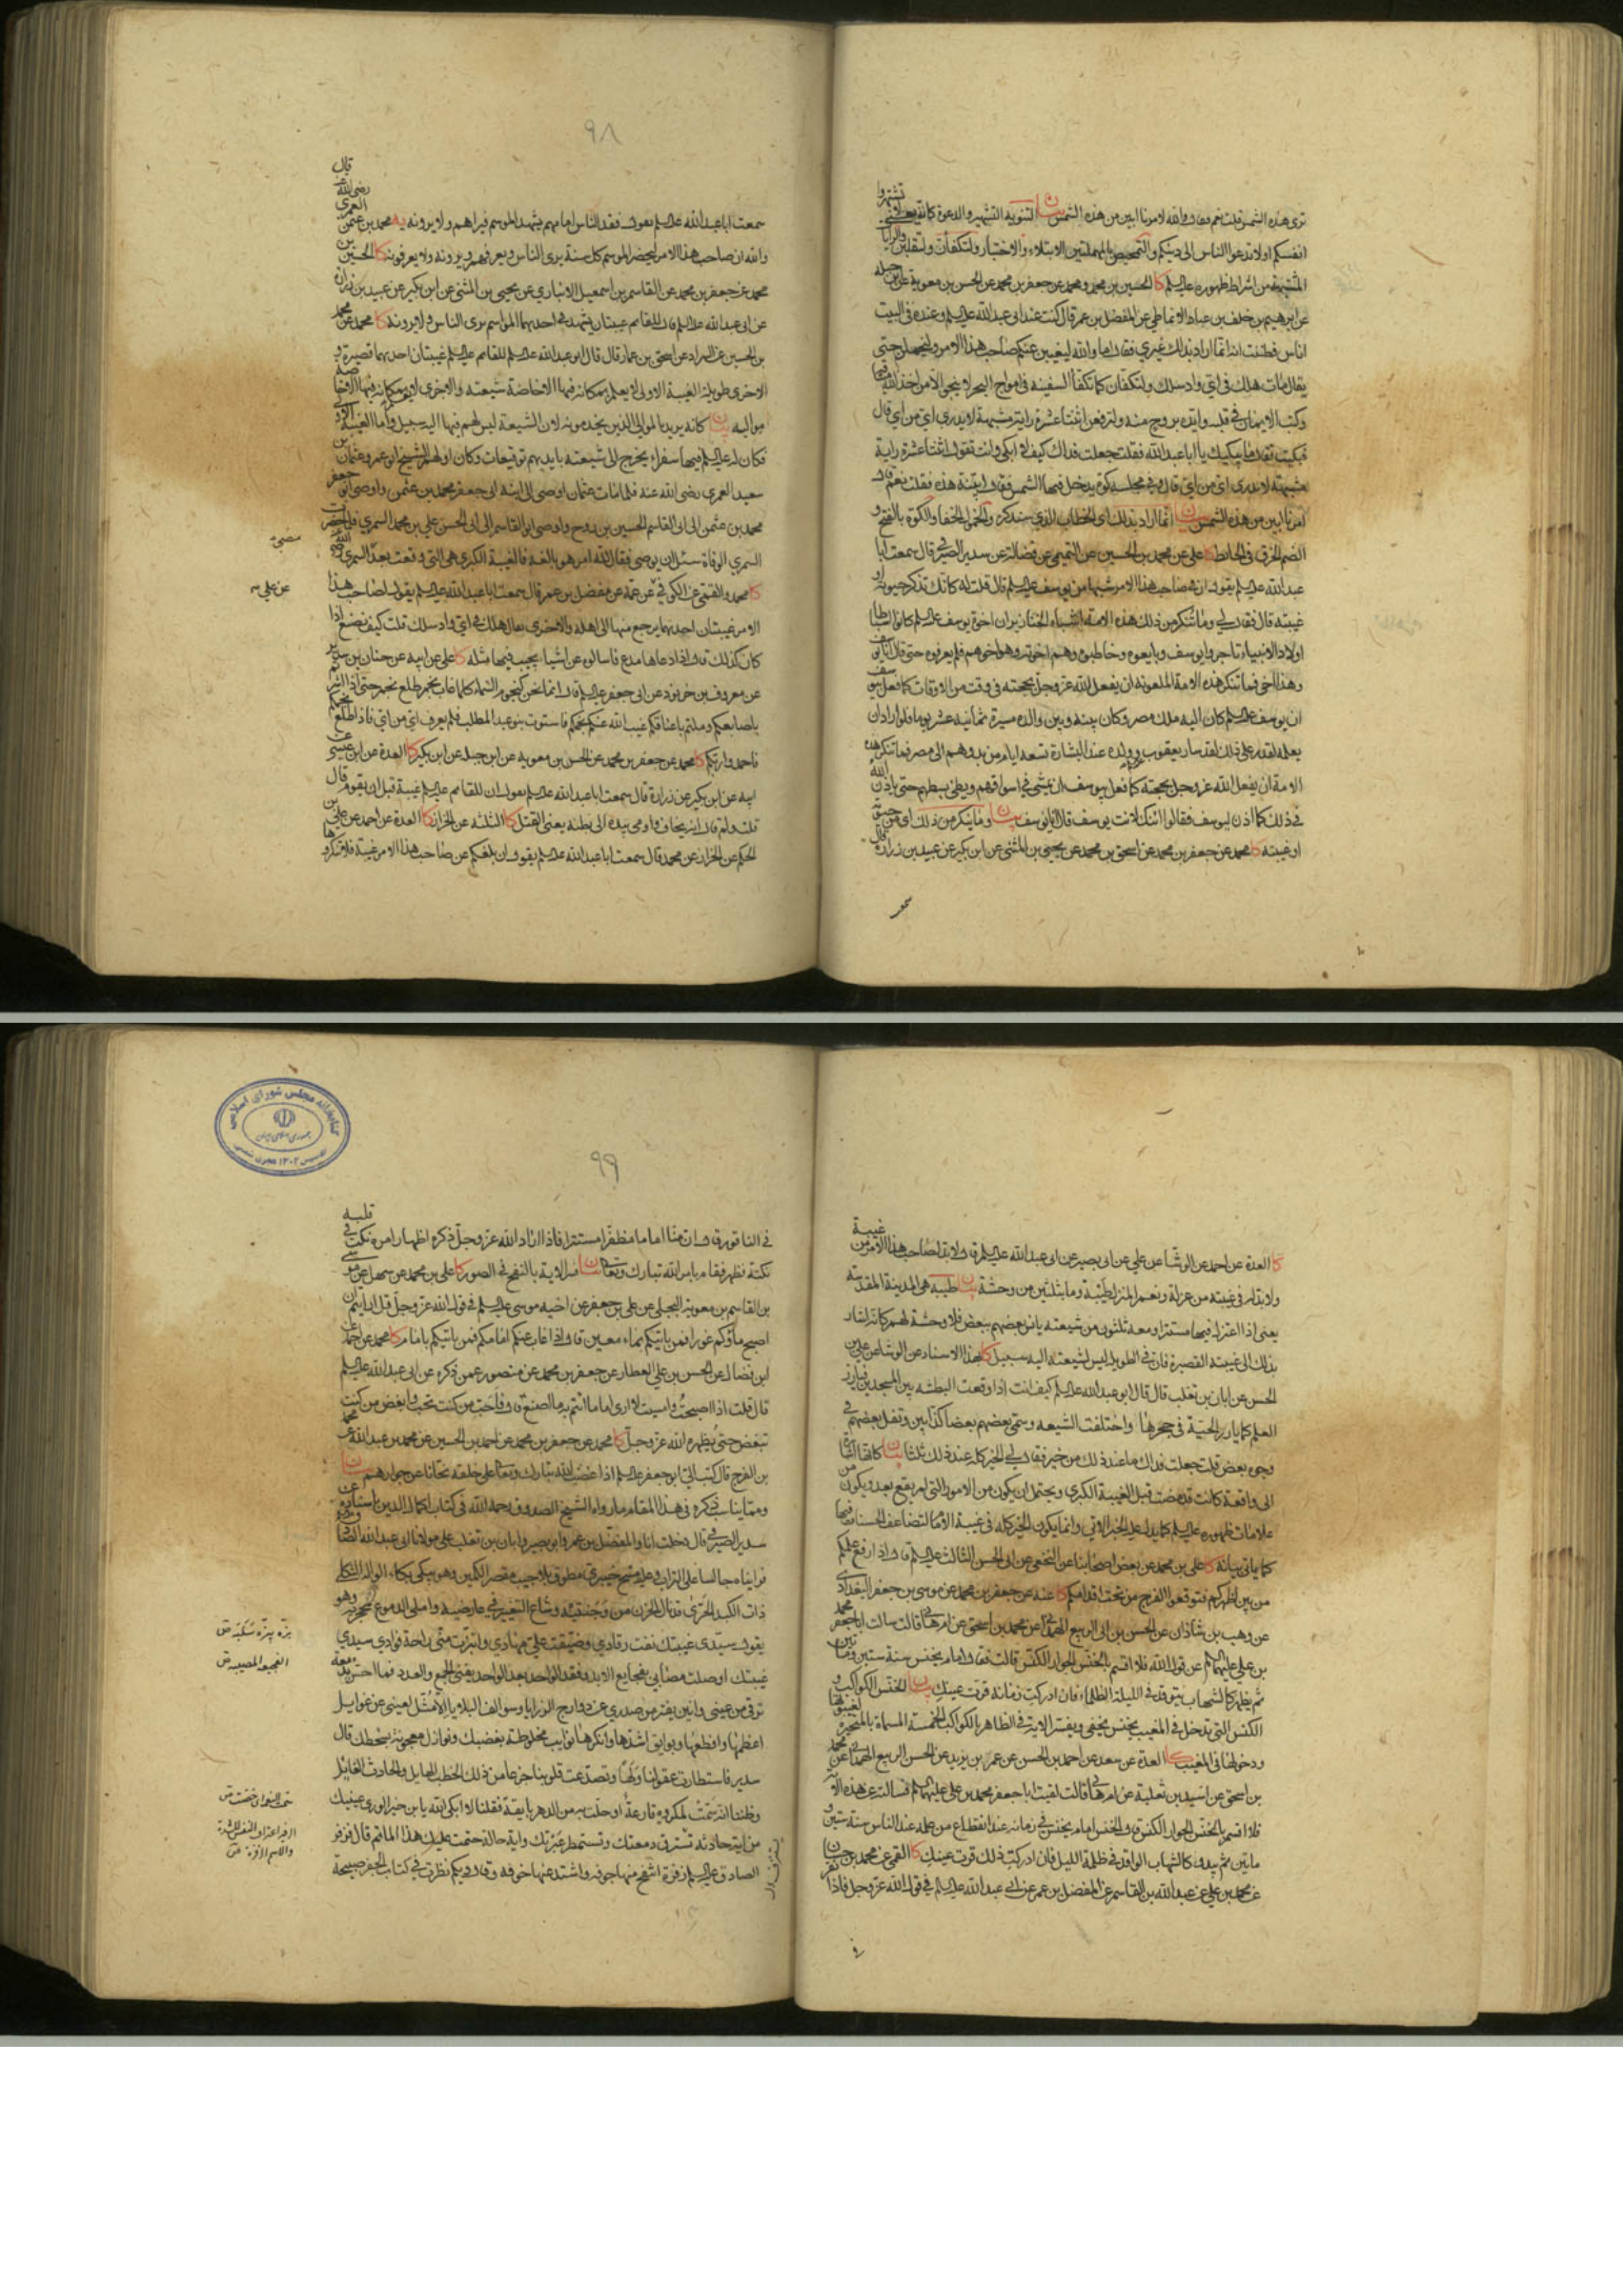 ترى هذه الشمس قلت نعم فقال والله لامرنا ابين من هذه الشمس بيان التنويه التشهير والدعوة كانه يعني لا تشتهروا
انفسكم او لا تدعوا الناس الى دينكم والتمحيص بالمهملتين الابتلاء والاختبار ولتكفأن ولتقلبن والرايات
المشتبهة من اشراط ظهوره عليه السلم كا الحسين بن محمد ومحمد عن جعفر بن محمد عن الحسن بن معوية عن ابن جبله
عن ابرهيم بن خلف بن عباد الانماطي عن المفضل بن عمر قال كنت عند ابى عبد الله عليه السلم وعنده في البيت
اناس فظننت انه انما اراد بذلك غيري فقال اما والله ليغيبن عنكم صاحب هذا الامر وليخملن حتى
يقال مات هلك في اي واد سلك ولتكفأن كما تكفأ السفينة في امواج البحر لا ينجو الا من اخذ الله ميثاقه
وكتب الايمان في قلبه وايده بروح منه ولترفعن اثنتا عشرة راية مشتبهة لا يدرى اي من اي قال
فبكيت فقال ما يبكيك يا ابا عبد الله فقلت جعلت فداك كيف لا ابكي وانت تقول اثنتا عشرة راية
مشتبهة لا يدرى اي من اي قال وفي مجلسه كوة يدخل فيها الشمس فقال ابينة هذه فقلت نعم قال
امرنا ابين من هذه الشمس بيان انما اراد بذلك اى الخطاب الذي سنذكر والخمول الخفا والكوة بالفتح و
الضم الخرق في الحائط كا علي عن محمد بن الحسين عن التميمي عن فضالة عن سدير الصيرفي قال سمعت ابا
عبد الله عليه السلم يقول ان في صاحب هذا الامر شبها من يوسف عليه السلم قال قلت له كانك تذكر حيوته او
غيبته قال فقال لي وما تنكر من ذلك هذه الامة اشباه الخنازير ان اخوة يوسف عليه السلم كانوا اسباطا
اولاد الانبياء تاجروا يوسف وبايعوه وخاطبوه وهم اخوته وهو اخوهم فلم يعرفوه حتى قال انا يوسف
وهذا اخي فما تنكر هذه الامة الملعونة ان يفعل الله عز وجل بحجته في وقت من الاوقات كما فعل بيوسف
ان يوسف عليه السلم كان اليه ملك مصر وكان بينه وبين والده مسيرة ثمانية عشر يوما فلو اراد ان
يعلمه لقدر على ذلك لقد سار يعقوب وولده عند البشارة تسعة ايام من بدوهم الى مصر فما تنكر هذه
الامة ان يفعل الله عز وجل بحجته كما فعل بيوسف ان يمشي في اسواقهم ويطئ بسطهم حتى ياذن الله
في ذلك كما اذن ليوسف فقالوا ائنك لانت يوسف قال انا يوسف بيان وما ينكر من ذلك اى من حيوته
او غيبته كا محمد عن جعفر بن محمد عن اسحق بن محمد عن يحيى بن المثنى عن ابن بكير عن عبيد بن زرارة قال
سمعت
٩٨
سمعت ابا عبد الله عليه السلم يقول فقد الناس امامهم يشهد الموسم فيراهم ولا يرونه يه محمد بن عثمن العمري رضي الله عنه قال
والله ان صاحب هذا الامر ليحضر الموسم كل سنة يرى الناس ويعرفهم ويرونه ولا يعرفونه كا الحسين بن
محمد عن جعفر بن محمد عن القاسم بن اسمعيل الانباري عن يحيى بن المثنى عن ابن بكير عن عبيد بن زرارة
عن ابي عبد الله عليه السلم قال للقائم غيبتان يشهد في احديهما المواسم يرى الناس ولا يرونه كا محمد عن محمد
بن الحسين عن السراد عن اسحق بن عمار قال قال ابو عبد الله عليه السلم للقائم عليه السلم غيبتان احديهما قصيرة و
الاخرى طويلة الغيبة الاولى لا يعلم بمكانه فيها الا خاصة شيعته والاخرى لا يعلم بمكانه فيها الا خاصة
مواليه بيان كانه يريد بالموالي الذين يخدمونه لان الشيعة ليس لهم فيها اليه سبيل واما الغيبة الاولى
فكان له عليه السلم فيها سفراء يخرج الى شيعته بايديهم توقيعات وكان اولهم الشيخ ابو عمرو عثمان بن
سعيد العمري رضي الله عنه فلما مات عثمان اوصى الى ابنه ابى جعفر محمد بن عثمن واوصى ابو جعفر
محمد بن عثمن الى ابى القاسم الحسين بن روح واوصى ابو القاسم الى ابى الحسن علي بن محمد السمري فلما حضرت
السمري الوفاة سئل ان يوصي فقال لله امر هو بالغه فالغيبة الكبرى هي التي وقعت بعد السمري رحمه الله
كا محمد والقمي عن الكوفي عن عمه عن مفضل بن عمر قال سمعت ابا عبد الله عليه السلم يقول لصاحب هذا
الامر غيبتان احديهما يرجع منها الى اهله والاخرى يقال هلك في اي واد سلك قلت كيف نصنع اذا
كان كذلك قال اذا ادعاها مدع فاسالوه عن اشياء يجيب فيها مثله كا علي عن ابيه عن حنان بن سدير
عن معروف بن خربوذ عن ابى جعفر عليه السلم قال انما نحن كنجوم السماء كلما غاب نجم طلع نجم حتى اذا اشرتم
باصابعكم وملتم باعناقكم غيب الله عنكم نجمكم فاستوت بنو عبد المطلب فلم يعرف اي من اي فاذا طلع نجمكم
فاحمدوا ربكم كا محمد عن جعفر بن محمد عن الحسن بن معوية عن ابن جبلة عن ابن بكير كا العدة عن ابن عيسى عن
ابيه عن ابن بكير عن زرارة قال سمعت ابا عبد الله عليه السلم يقول ان للقائم عليه السلم غيبة قبل ان يقوم قال
قلت ولم قال انه يخاف واومى بيده الى بطنه يعني القتل كا الثلثة عن الخراز كا العدة عن احمد عن علي بن
الحكم عن الخراز عن محمد قال سمعت ابا عبد الله عليه السلم يقول ان بلغكم عن صاحب هذا الامر غيبة فلا تنكروها
عن علي
كا العدة عن احمد عن الوشا عن علي عن ابى بصير عن ابى عبد الله عليه السلم قال لا بد لصاحب هذا الامر من غيبة
ولا بد له في غيبته من عزلة ونعم المنزل طيبة وما بثلثين من وحشة بيان طيبة هي المدينة المقدسة
يعني اذا اعتزل فيها مستترا ومعه ثلثون من شيعته يانس بعضهم ببعض فلا وحشة لهم كانه اشار
بذلك الى غيبته القصيرة فان في الطويلة ليس لشيعته اليه سبيل كا بهذا الاسناد عن الوشا عن علي بن
الحسن عن ابان بن تغلب قال قال ابو عبد الله عليه السلم كيف انت اذا وقعت البطشة بين المسجدين فيارز
العلم كما يارز الحية في جحرها واختلفت الشيعه وسمى بعضهم بعضا كذابين وتفل بعضهم في
وجوه بعض قلت جعلت فداك ما عند ذلك من خير فقال لي الخير كله عند ذلك ثلثا بيان كانها اشارة
الى واقعة كانت قد مضت قبل الغيبة الكبرى ويحتمل ان يكون من الامور التي لم يقع بعد ويكون من
علامات ظهوره عليه السلم كما يدل عليه الخبر الاتي وانما يكون الخير كله في غيبة الامام لتضاعف الحسنات فيها
كما ياتي بيانه كا علي بن محمد عن بعض اصحابنا عن النخعي عن ابى الحسن الثالث عليه السلم قال اذا رفع علمكم
من بين اظهركم فتوقعوا الفرج من تحت اقدامكم كا عنه عن جعفر بن محمد عن موسى بن جعفر البغدادي
عن وهب بن شاذان عن الحسن بن ابى الربيع الهمداني عن محمد بن اسحق عن ام هاني قالت سالت ابا جعفر محمد
بن علي عليهما السلم عن قول الله فلا اقسم بالخنس الجوار الكنس قالت فقال امام يخنس سنة ستين وماتين
ثم يظهر كالشهاب يتوقد في الليلة الظلماء فان ادركت زمانه قرت عينك بيان الخنس الكواكب و
الكنس التي تدخل في المغيب يخنس يختفي ويفسر الاية في الظاهر بالكواكب الخمسة المسماة بالمتحيرة لغيبتها
ودخولها في المغيب كا العدة عن سعد عن احمد بن الحسن عن عمر بن يزيد عن الحسن الربيع الهمداني عن محمد
بن اسحق عن اسيد بن ثعلبة عن ام هاني قالت لقيت ابا جعفر محمد بن علي عليهما السلم فسالته عن هذه الاية
فلا اقسم بالخنس الجوار الكنس قال الخنس امام يخنس في زمانه عند انقطاع من علمه عند الناس سنة ستين و
ماتين ثم يبدو كالشهاب الواقد في ظلمة الليل فان ادركت ذلك قرت عينك كا القمي عن محمد بن حسان
عن محمد بن علي عن عبد الله بن القاسم عن المفضل بن عمر عن ابى عبد الله عليه السلم في قول الله عز وجل فاذا نقر
في
٩٩
في الناقور قال ان منا اماما مظفرا مستترا فاذا اراد الله عز وجل ذكره اظهار امره نكت في قلبه
نكتة فظهر فقام بامر الله تبارك وتعالى بيان فسر الاية بالنفخ في الصور كا علي بن محمد عن سهل عن موسى
بن القاسم بن معوية البجلي عن علي بن جعفر عن اخيه موسى عليه السلم في قول الله عز وجل قل ارايتم ان
اصبح ماؤكم غورا فمن ياتيكم بماء معين قال اذا غاب عنكم امامكم فمن ياتيكم بامام كا محمد عن احمد عن
ابن فضال عن الحسن بن علي العطار عن جعفر بن محمد عن منصور عمن ذكره عن ابى عبد الله عليه السلم
قال قلت اذا اصبحت وامسيت لا ارى اماما ائتم به ما اصنع قال فاحب من كنت تحب وابغض من كنت
تبغض حتى يظهره الله عز وجل كا محمد عن جعفر بن محمد عن احمد بن الحسين عن محمد بن عبد الله عن محمد
بن الفرج قال كتب الي ابو جعفر عليه السلم اذا غضب الله تبارك وتعالى على خلقه نحانا عن جوارهم بيان
ومما يناسب ذكره في هذا المقام ما رواه الشيخ الصدوق رحمه الله في كتاب اكمال الدين باسناده عن
سدير الصيرفي قال دخلت انا والمفضل بن عمر وابو بصير وابان بن تغلب على مولانا ابى عبد الله الصادق
فرايناه جالسا على التراب وعليه مسح خيبري مطوق بلا جيب مقصر الكمين وهو يبكي بكاء الواله الثكلى
ذات الكبد الحرى قد نال الحزن من وجنتيه وشاع التغيير في عارضيه وابلى الدموع محجريه وهو
يقول سيدي غيبتك نفت رقادي وضيقت علي مهادي وابتزت مني راحة فؤادي سيدي
غيبتك اوصلت مصابي بفجايع الابد وفقد الواحد بعد الواحد يفني الجمع والعدد فما احس بدمعة
ترقى من عيني وانين يفتر من صدري عن دوارج الرزايا وسوالف البلايا الا مثل لعيني عن غوايل
اعظمها وافظعها وبوايق اشدها وانكرها ونوايب مخلوطة بغضبك ونوازل معجونة بسخطك قال
سدير فاستطارت عقولنا ولها وتصدعت قلوبنا جزعا من ذلك الخطب الهايل والحادث الغايل
وظننا انه سمت لمكروهة قارعة او حلت به من الدهر بايقة فقلنا لا ابكى الله يا بن خير الورى عينيك
من اية حادثة تسترق دمعتك وتستمطر عبرتك واية حالة حتمت عليك هذا الماتم قال فزفر
الصادق عليه السلم زفرة انتفخ منها جوفه واشتد عنها خوفه وقال ويكم نظرت في كتاب الجفر صبيحة
بزه يبزه سلبه ص
الفجيعة المصيبة ص
كتابخانه مجلس شورای اسلامی
جمهوری اسلامی ایران
تاسیس ۱۳۰۲ هجری شمسی